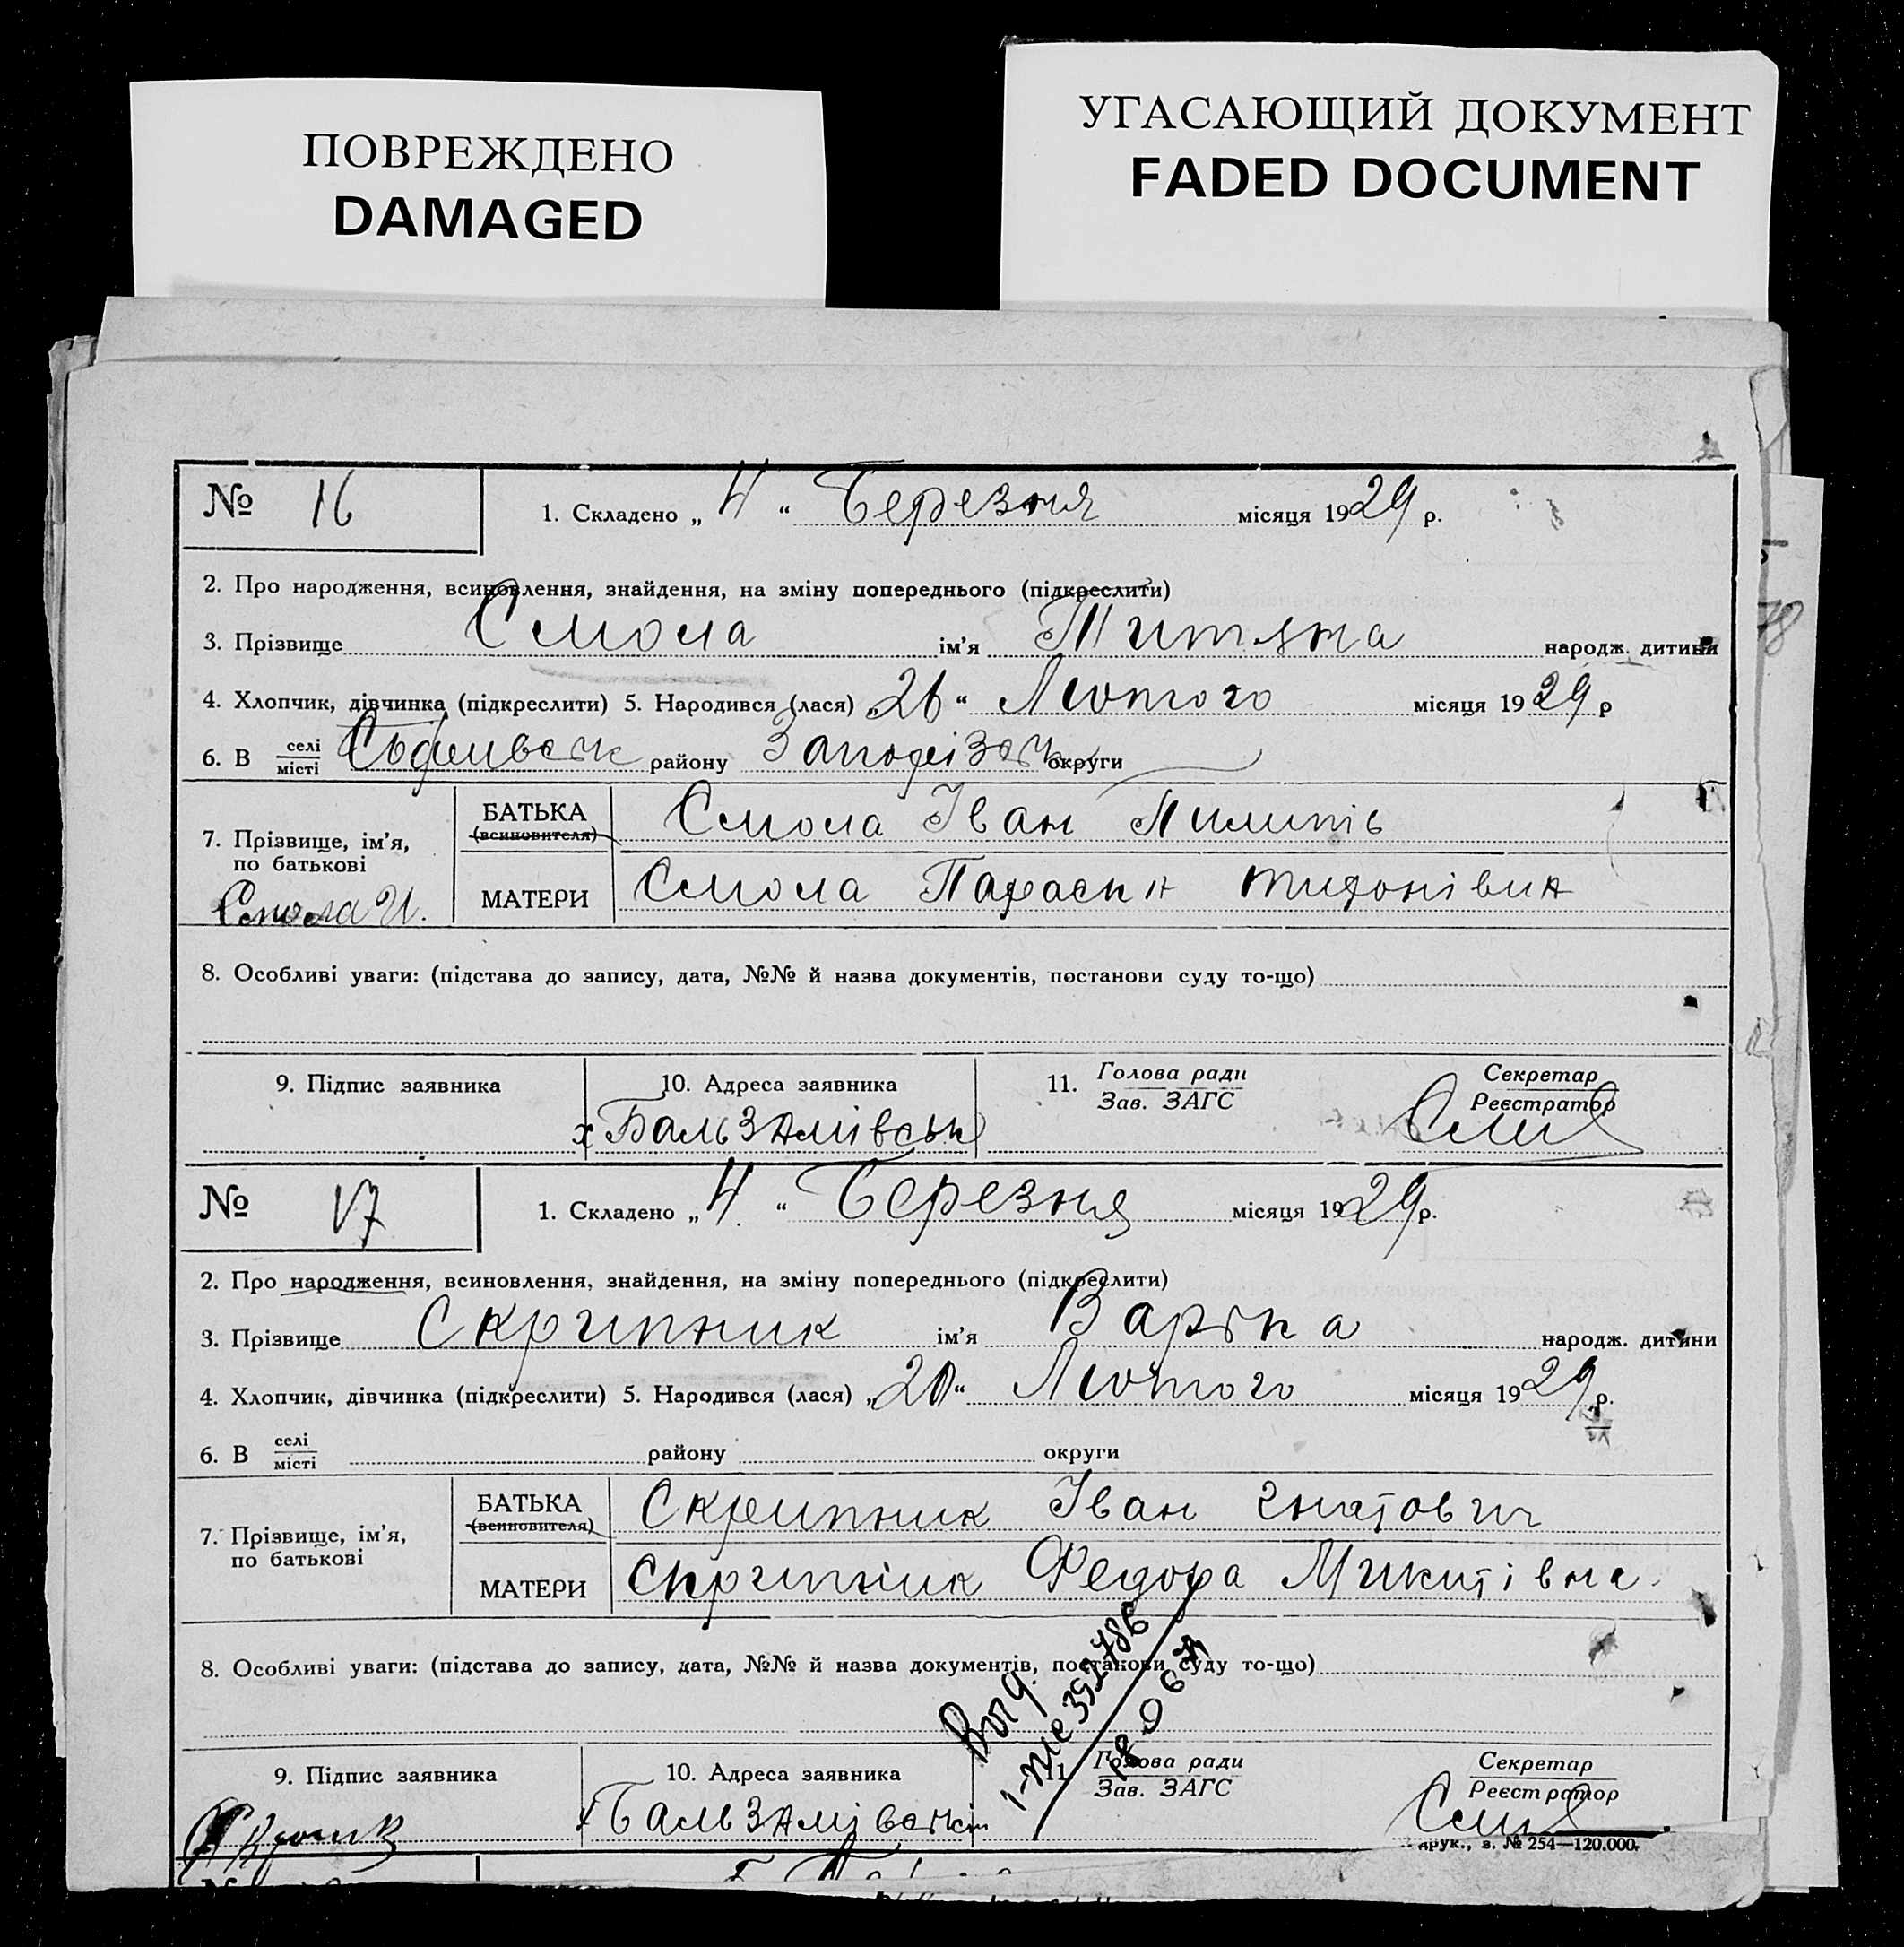 ПОВРЕЖДЕНО
DAMAGED
УГАСАЮЩИЙ ДОКУМЕНТ
FADED DOCUMENT
№ 16
1. Складено „ 4 “ Березня місяця 1929 р.
2. Про народження, всиновлення, знайдення, на зміну попереднього (підкреслити)
3. Прізвище Смола ім’я Титяна народж. дитини
4. Хлопчик, дівчинка (підкреслити) 5. Народився (лася) „26“ Лютого місяця 1929 р
6. В селі місті району округи
7. Прізвище, ім’я, по батькові
БАТЬКА (всиновителя) Смола Іван Пилипів
МАТЕРИ Смола Параска
Смола И.
8. Особливі уваги: (підстава до запису, дата, №№ й назва документів, постанови суду то-що)
9. Підпис заявника
10. Адреса заявника
11. Голова ради Зав. ЗАГС
Секретар Реєстратор
х Бальзамівськ
№ 17
1. Складено „ 4. “ Березня місяця 1929 р.
2. Про народження, всиновлення, знайдення, на зміну попереднього (підкреслити)
3. Прізвище Скрипник ім’я Варька народж. дитини
4. Хлопчик, дівчинка (підкреслити) 5. Народився (лася) „20“ Лютого місяця 1929 р.
6. В селі місті району округи
7. Прізвище, ім’я, по батькові
БАТЬКА (всиновителя) Скрипник Іван Гнатович
МАТЕРИ Скрипник Федора Микитівна
8. Особливі уваги: (підстава до запису, дата, №№ й назва документів, постанови суду то-що)
9. Підпис заявника
10. Адреса заявника
11. Голова ради Зав. ЗАГС
Секретар Реєстратор
друк., з. № 254—120.000.